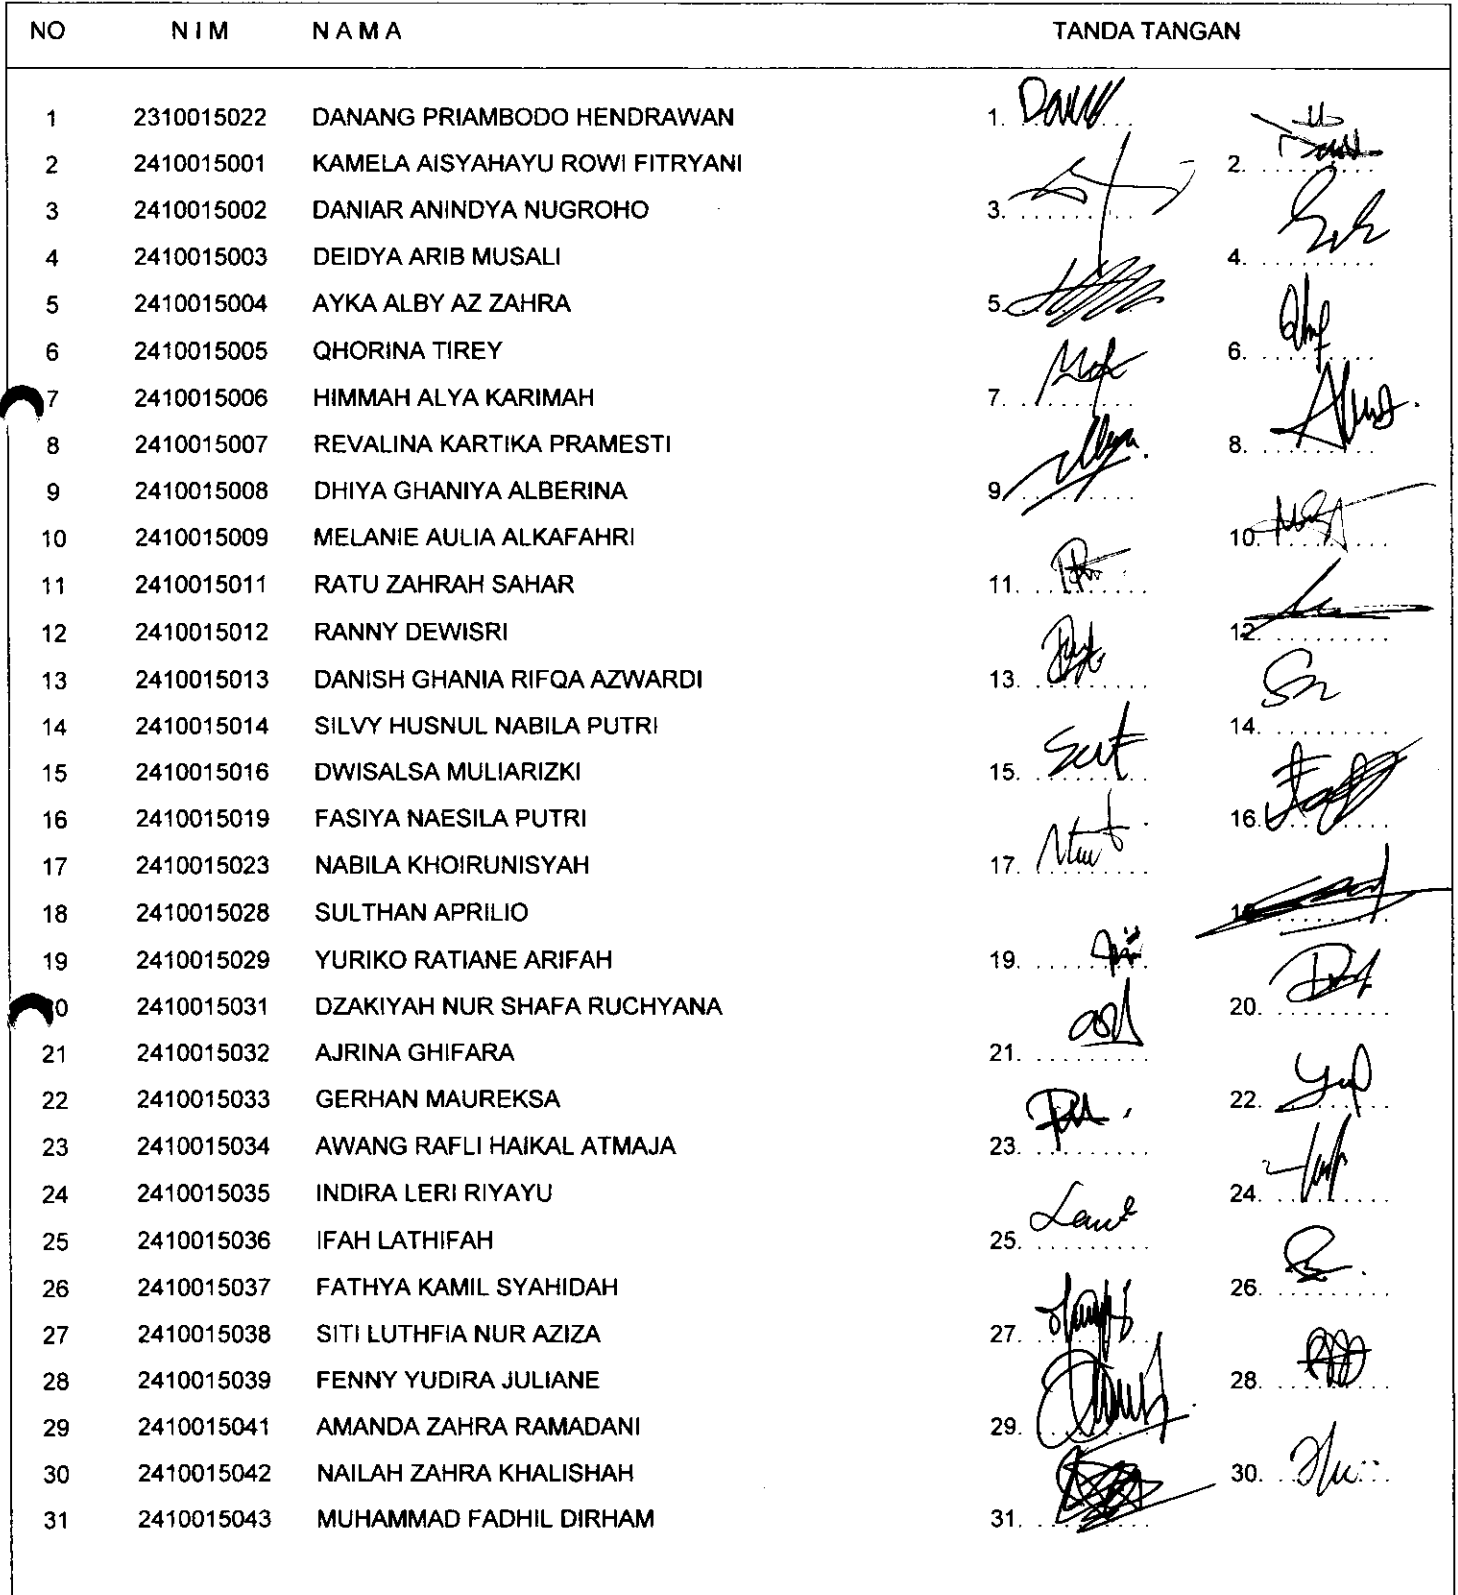 NO NIM NAMA TANDA TANGAN
1 2310015022 DANANG PRIAMBODO HENDRAWAN 1.
2 2410015001 KAMELA AISYAHAYU ROWI FITRYANI 2.
3 2410015002 DANIAR ANINDYA NUGROHO 3.
4 2410015003 DEIDYA ARIB MUSALI 4.
5 2410015004 AYKA ALBY AZ ZAHRA 5.
6 2410015005 QHORINA TIREY 6.
7 2410015006 HIMMAH ALYA KARIMAH 7.
8 2410015007 REVALINA KARTIKA PRAMESTI 8.
9 2410015008 DHIYA GHANIYA ALBERINA 9.
10 2410015009 MELANIE AULIA ALKAFAHRI 10.
11 2410015011 RATU ZAHRAH SAHAR 11.
12 2410015012 RANNY DEWISRI 12.
13 2410015013 DANISH GHANIA RIFQA AZWARDI 13.
14 2410015014 SILVY HUSNUL NABILA PUTRI 14.
15 2410015016 DWISALSA MULIARIZKI 15.
16 2410015019 FASIYA NAESILA PUTRI 16.
17 2410015023 NABILA KHOIRUNISYAH 17.
18 2410015028 SULTHAN APRILIO 18.
19 2410015029 YURIKO RATIANE ARIFAH 19.
20 2410015031 DZAKIYAH NUR SHAFA RUCHYANA 20.
21 2410015032 AJRINA GHIFARA 21.
22 2410015033 GERHAN MAUREKSA 22.
23 2410015034 AWANG RAFLI HAIKAL ATMAJA 23.
24 2410015035 INDIRA LERI RIYAYU 24.
25 2410015036 IFAH LATHIFAH 25.
26 2410015037 FATHYA KAMIL SYAHIDAH 26.
27 2410015038 SITI LUTHFIA NUR AZIZA 27.
28 2410015039 FENNY YUDIRA JULIANE 28.
29 2410015041 AMANDA ZAHRA RAMADANI 29.
30 2410015042 NAILAH ZAHRA KHALISHAH 30.
31 2410015043 MUHAMMAD FADHIL DIRHAM 31.